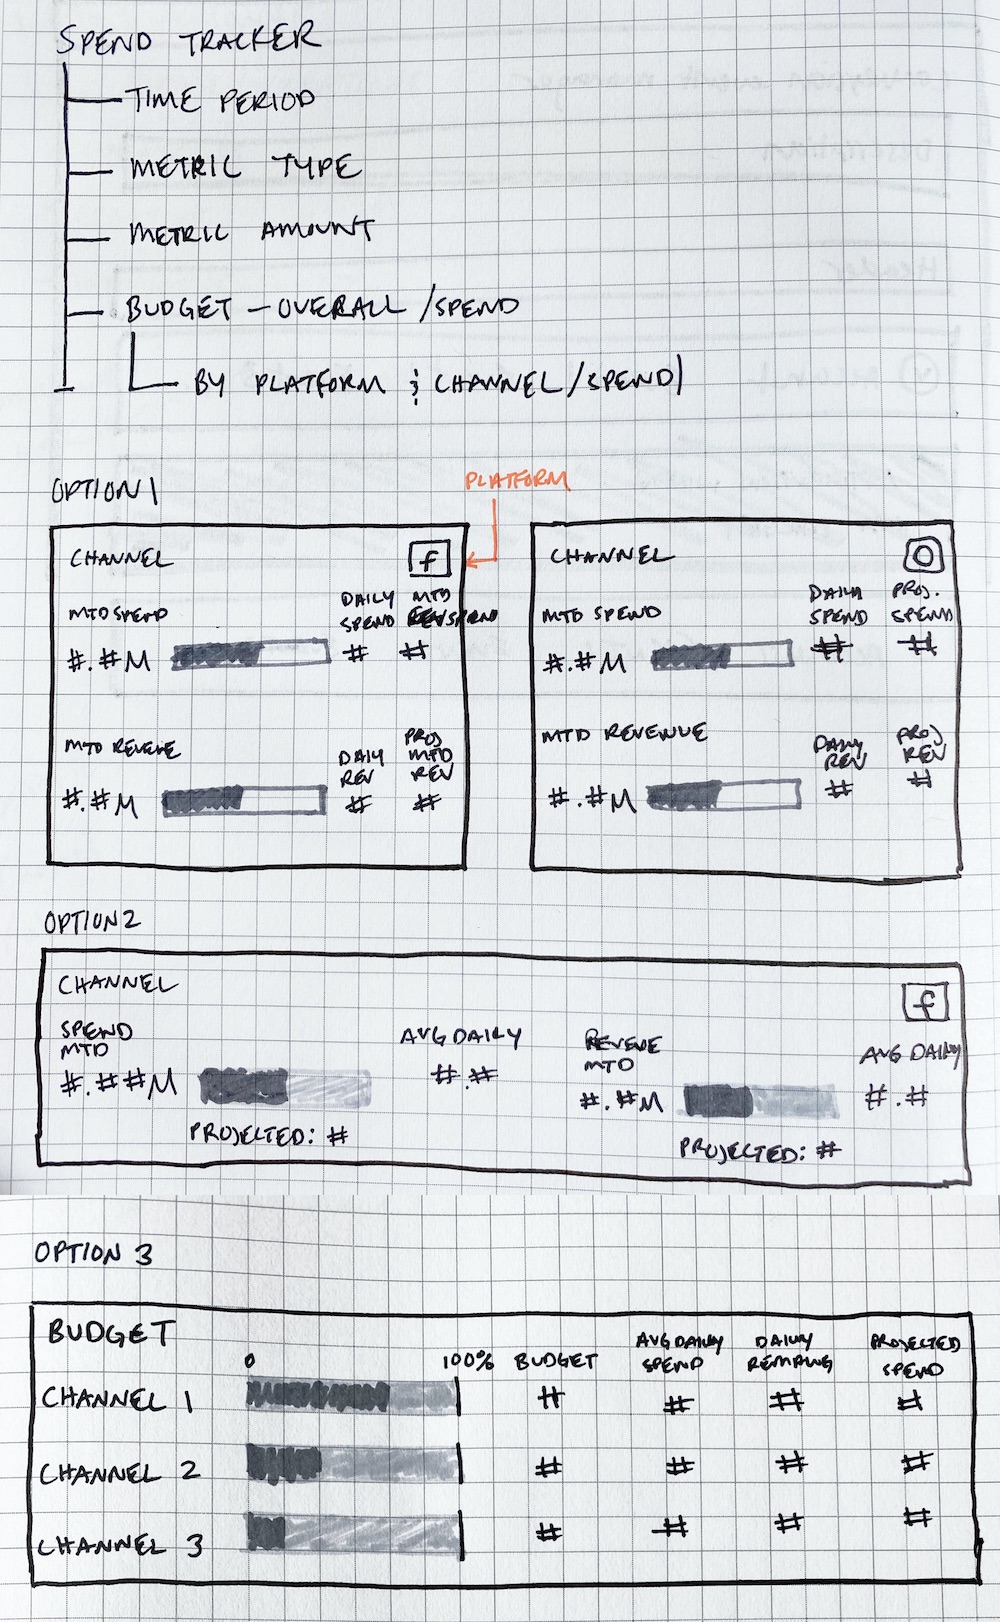 SPEND TRACKER
TIME PERIOD
METRIC TYPE
METRIC AMOUNT
BUDGET - OVERALL / SPEND
BY PLATFORM & CHANNEL / SPEND
OPTION 1
PLATFORM
CHANNEL f
MTD SPEND
DAILY SPEND
MTD SPEND
#.#M # #
MTD REVENE
DAILY REV
PROJ MTD REV
#.#M # #
CHANNEL
MTD SPEND
DAILY SPEND
PROJ. SPEND
#.#M # #
MTD REVENUE
DAILY REV
PROJ REV
#.#M # #
OPTION 2
CHANNEL f
SPEND MTD
AVG DAILY
#.##M #.#
PROJECTED: #
REVENE MTD
AVG DAILY
#.#M #.#
PROJECTED: #
OPTION 3
BUDGET
0 100% BUDGET
AVG DAILY SPEND
DAILY
PROJECTED SPEND
CHANNEL 1 # # # #
CHANNEL 2 # # # #
CHANNEL 3 # # # #